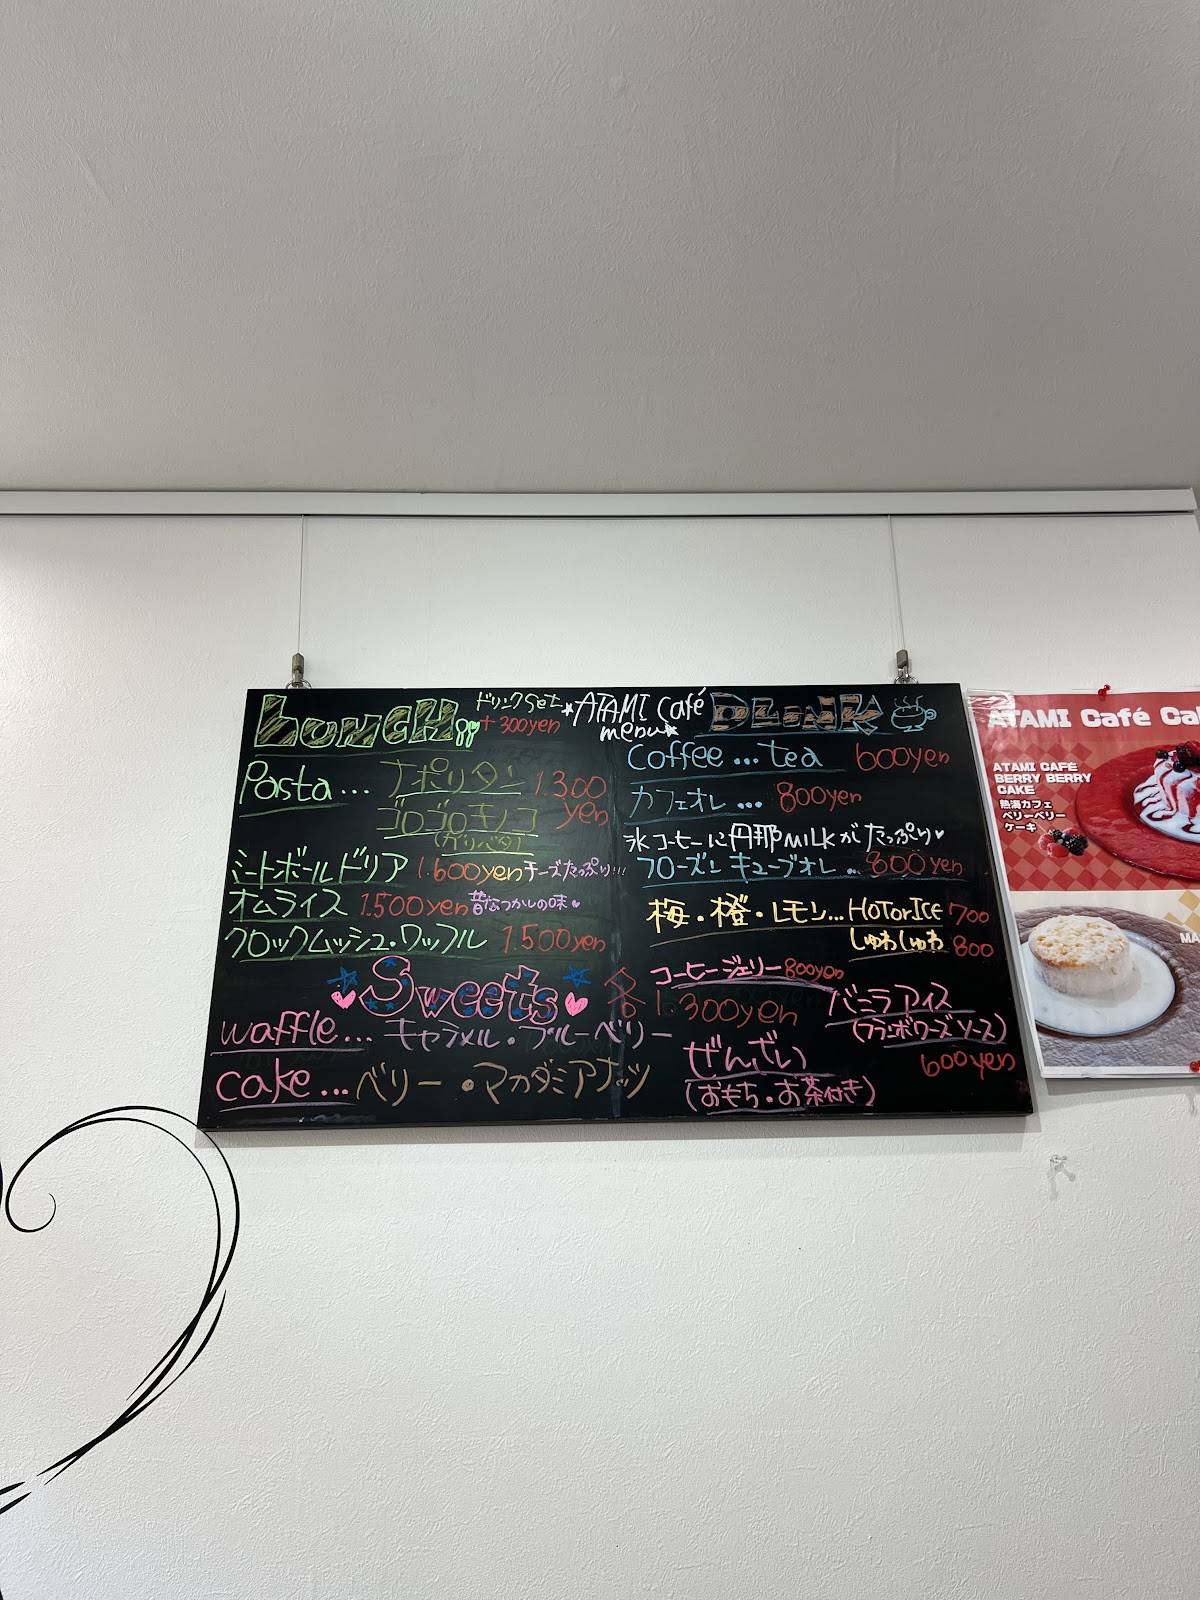 LUNCH ドリンクSet
+300yen
★ATAMI Café
menu★
DLINK
Pasta... ナポリタン 1.300
yen
ゴロゴロキノコ
(ガリバタ)
ミートボールドリア 1.600yen チーズたっぷり!!!
オムライス 1.500yen 昔なつかしの味♥
クロックムッシュ・ワッフル 1.500yen
Coffee... tea 600yen
カフェオレ... 800yen
氷コーヒーに丹那MILKがたっぷり♥
フローズンキューブオレ... 800yen
梅・橙・レモン...HOTorICE 700
しゅわしゅわ 800
★Sweets★ 各1300yen
waffle... キャラメル・ブルーベリー
cake... ベリー・マカダミアナッツ
コーヒージェリー 800yen
ぜんざい
(おもち・お茶付き)
バニラアイス
(フランボワーズソース)
600yen
ATAMI Café Cak
ATAMI CAFÉ
BERRY BERRY
CAKE
熱海カフェ
ベリーベリー
ケーキ
MA